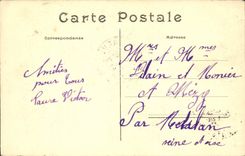 Carte Postale
Correspondance
Adresse
Mrs et Mmes
Dain et Monier
à Mézy
Par Meulan
seine et oise
Amitiés
pour tous
Laure Victor